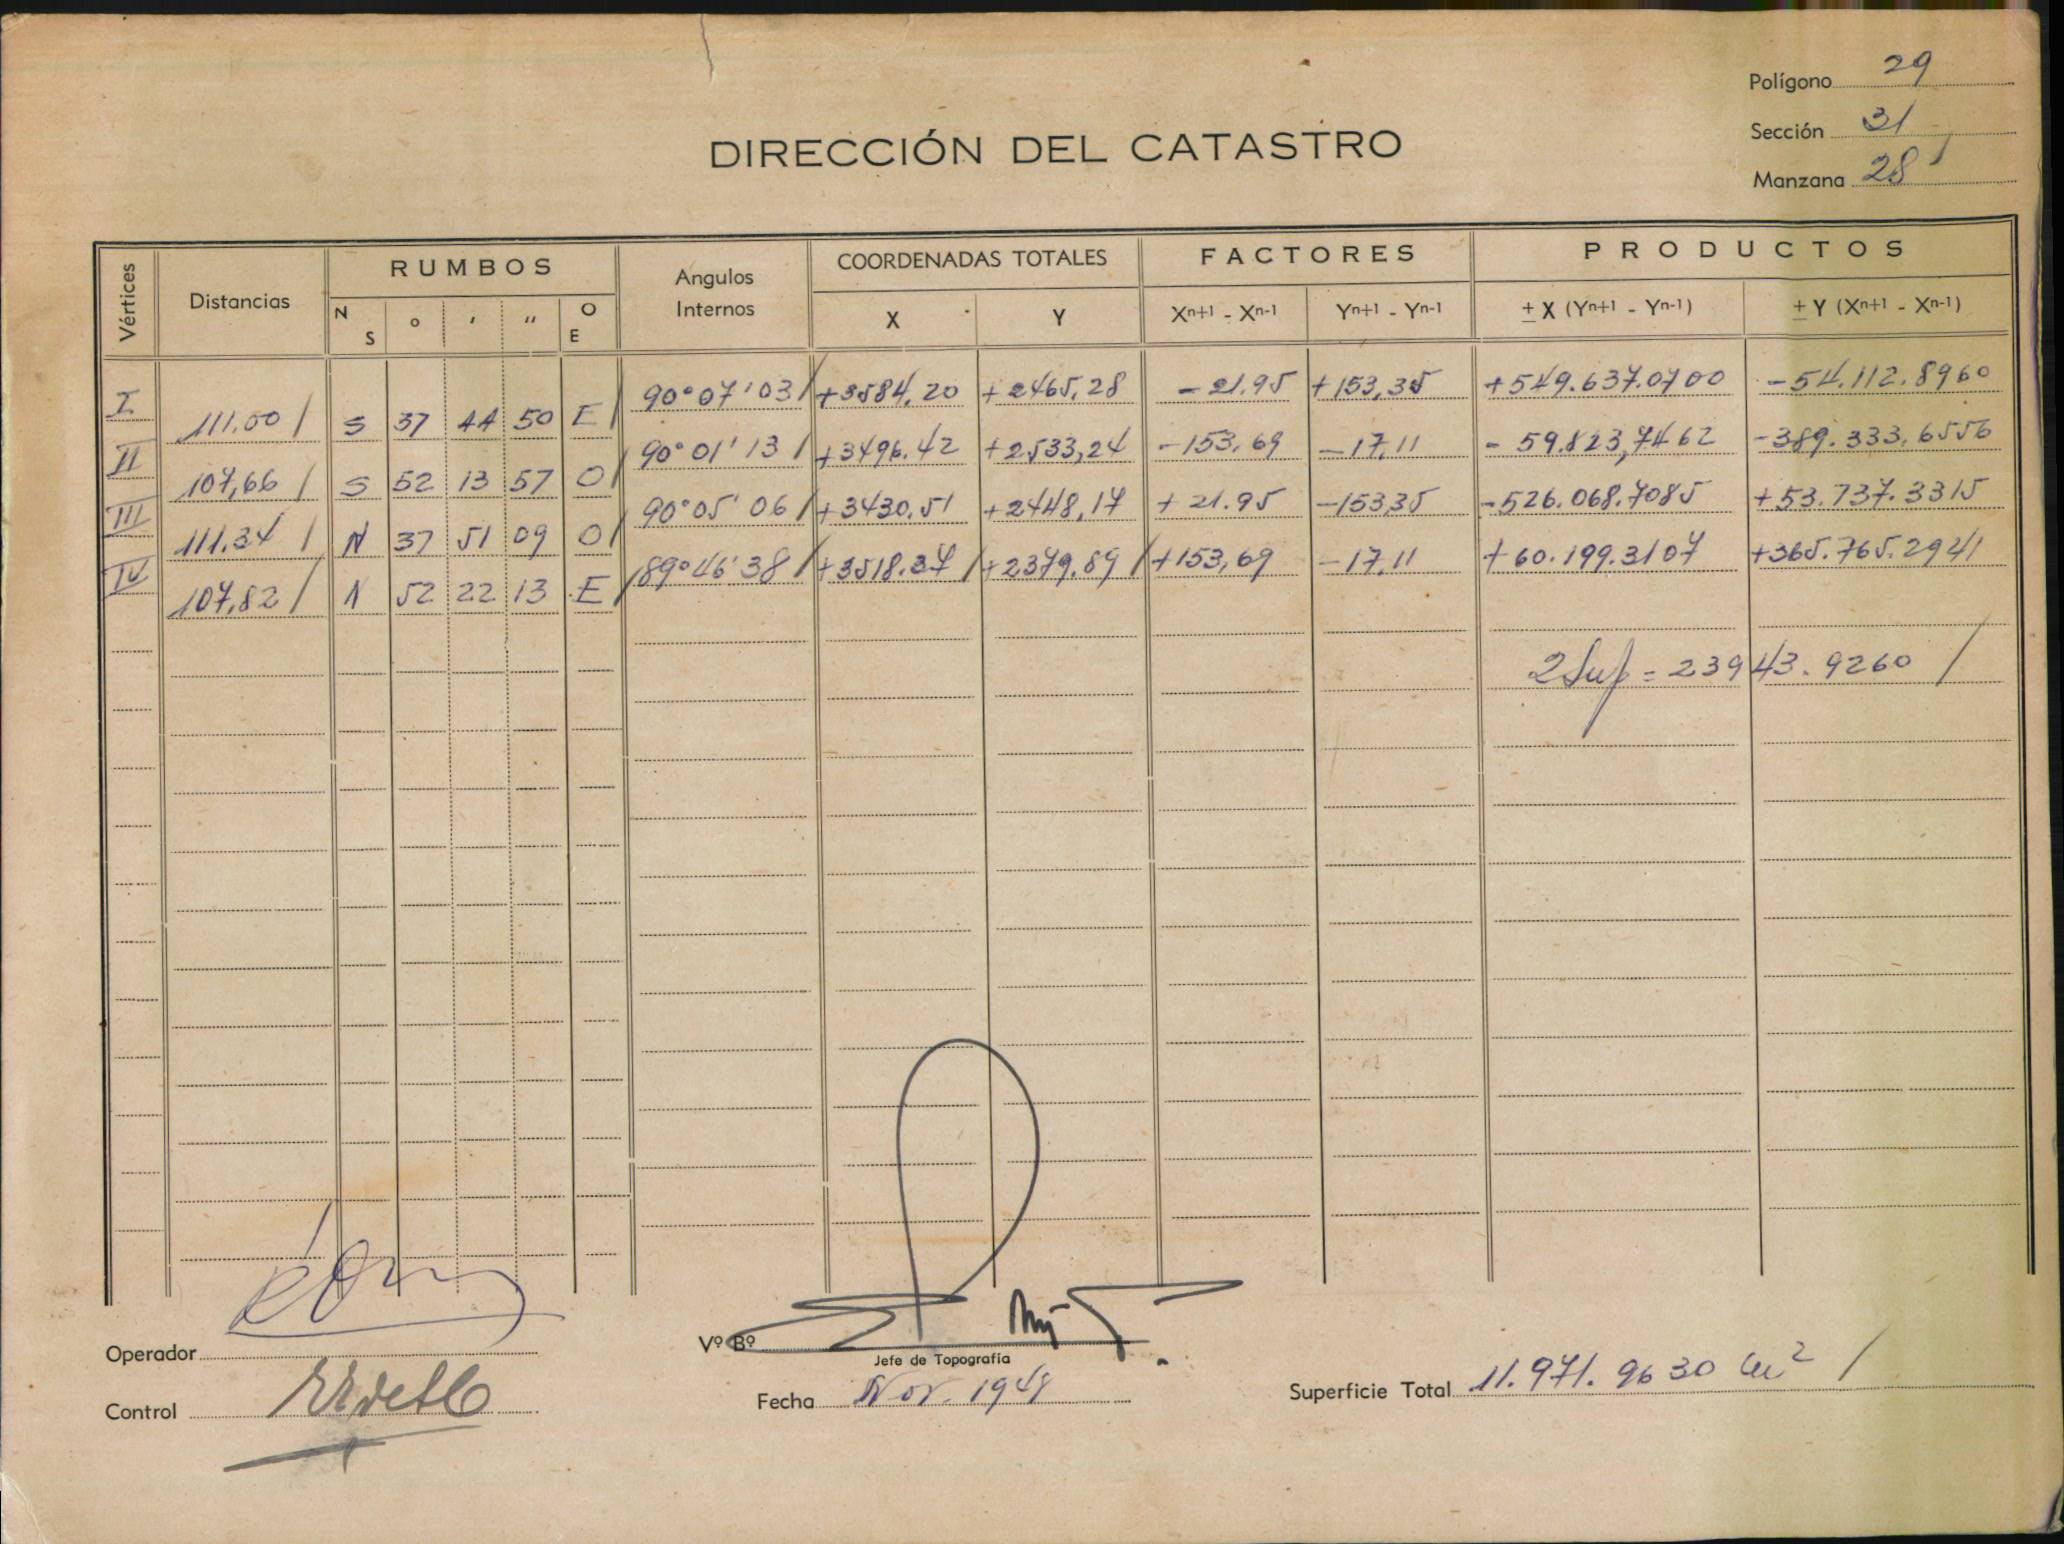 Polígono 29
Sección 31
Manzana 28
DIRECCIÓN DEL CATASTRO
Vértices Distancias RUMBOS Angulos Internos COORDENADAS TOTALES FACTORES PRODUCTOS
N S ° ' " O E X Y Xn+1 - Xn-1 Yn+1 - Yn-1 ± X (Yn+1 - Yn-1) ± Y (Xn+1 - Xn-1)
I 90°07'03 +3584,20 +2465,28 -21.95 +153,35 +549.637.0700 -54.112.8960
111,00 S 37 44 50 E
II 90°01'13 +3496.42 +2533,24 -153,69 -17,11 -59.823,7462 -389.333,6556
107,66 S 52 13 57 O
III 90°05'06 +3430,51 +2448,17 +21.95 -153,35 -526.068.7085 +53.737.3315
111.34 N 37 51 09 O
IV 89°46'38 +3518.37 +2379,89 +153,69 -17,11 +60.199.3107 +365.765.2941
107,82 N 52 22 13 E
2Sup = 23943.9260
Operador
Vº Bº
Jefe de Topografía
Control
Fecha Nov. 1949
Superficie Total 11.971.9630 m²